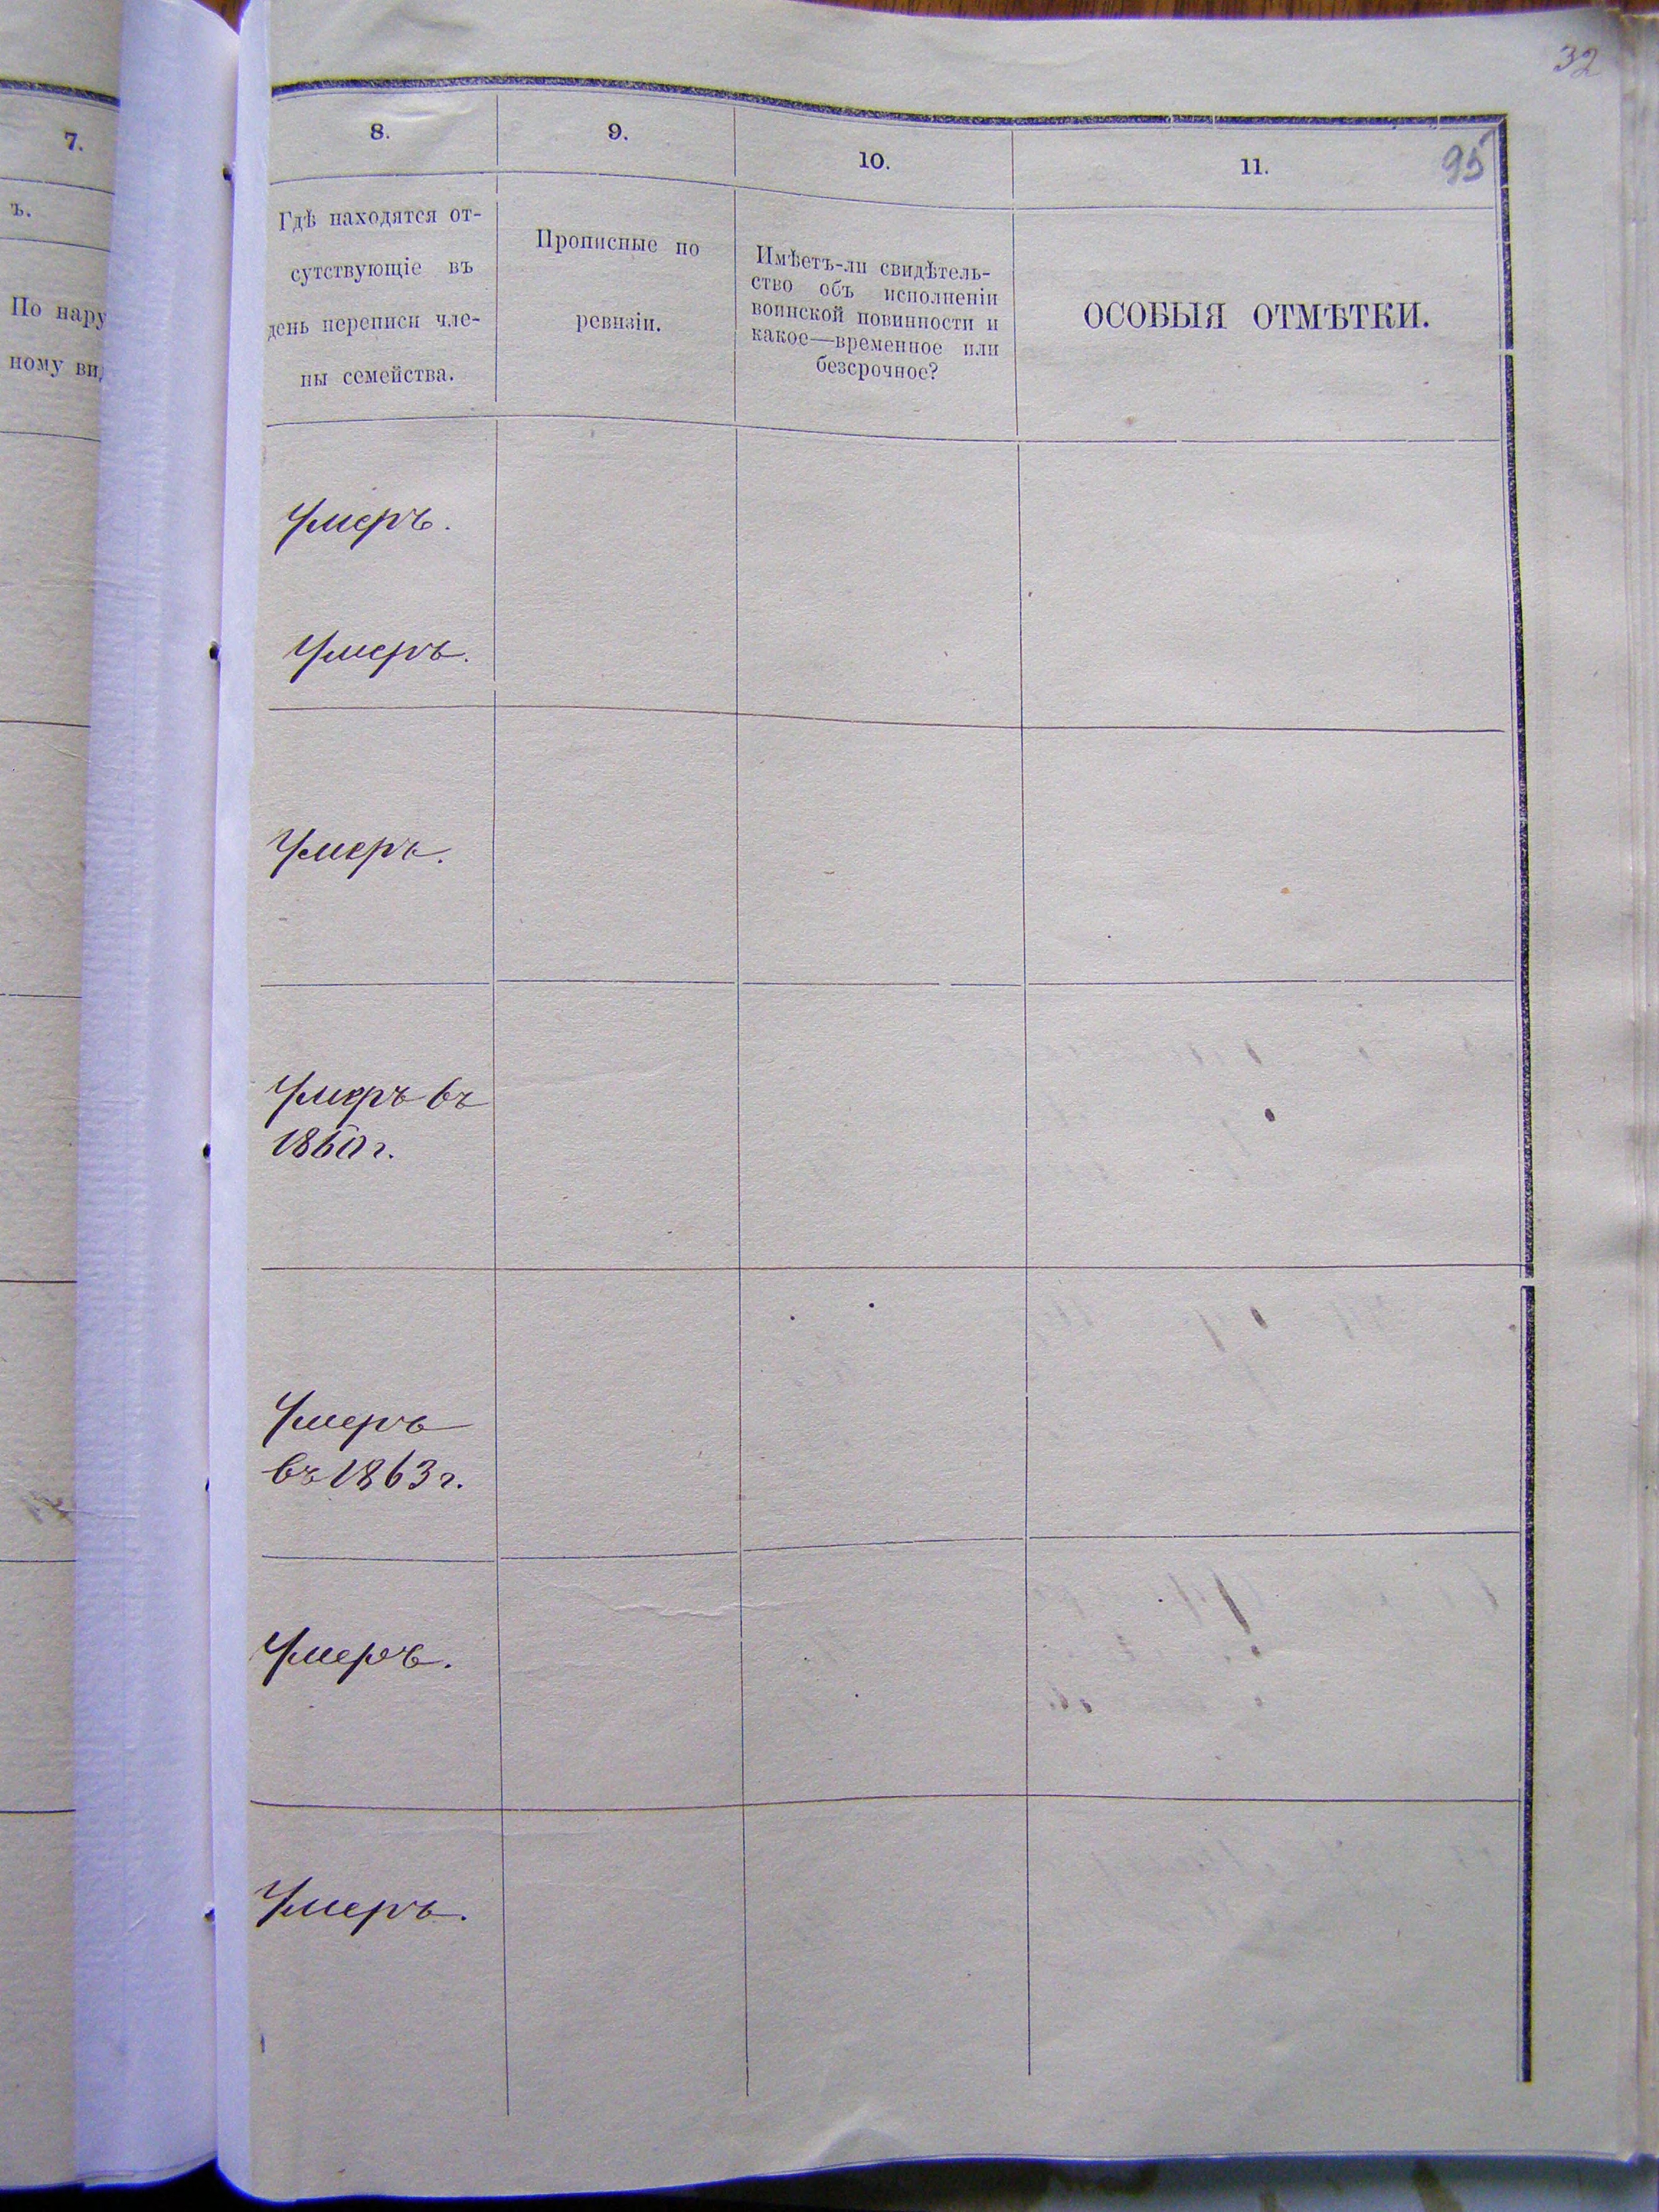 32
7.
ъ.
По нару
ному ви
8.
9.
10.
11.
95
Гдѣ находятся от-
сутствующіе въ
день переписи чле-
ны семейства.
Прописные по
ревизіи.
Имѣетъ-ли свидѣтель-
ство объ исполненіи
воинской повинности и
какое—временное или
безсрочное?
ОСОБЫЯ ОТМѢТКИ.
Умеръ.
Умеръ.
Умеръ.
Умеръ въ
1860 г.
Умеръ
въ 1863 г.
Умеръ.
Умеръ.